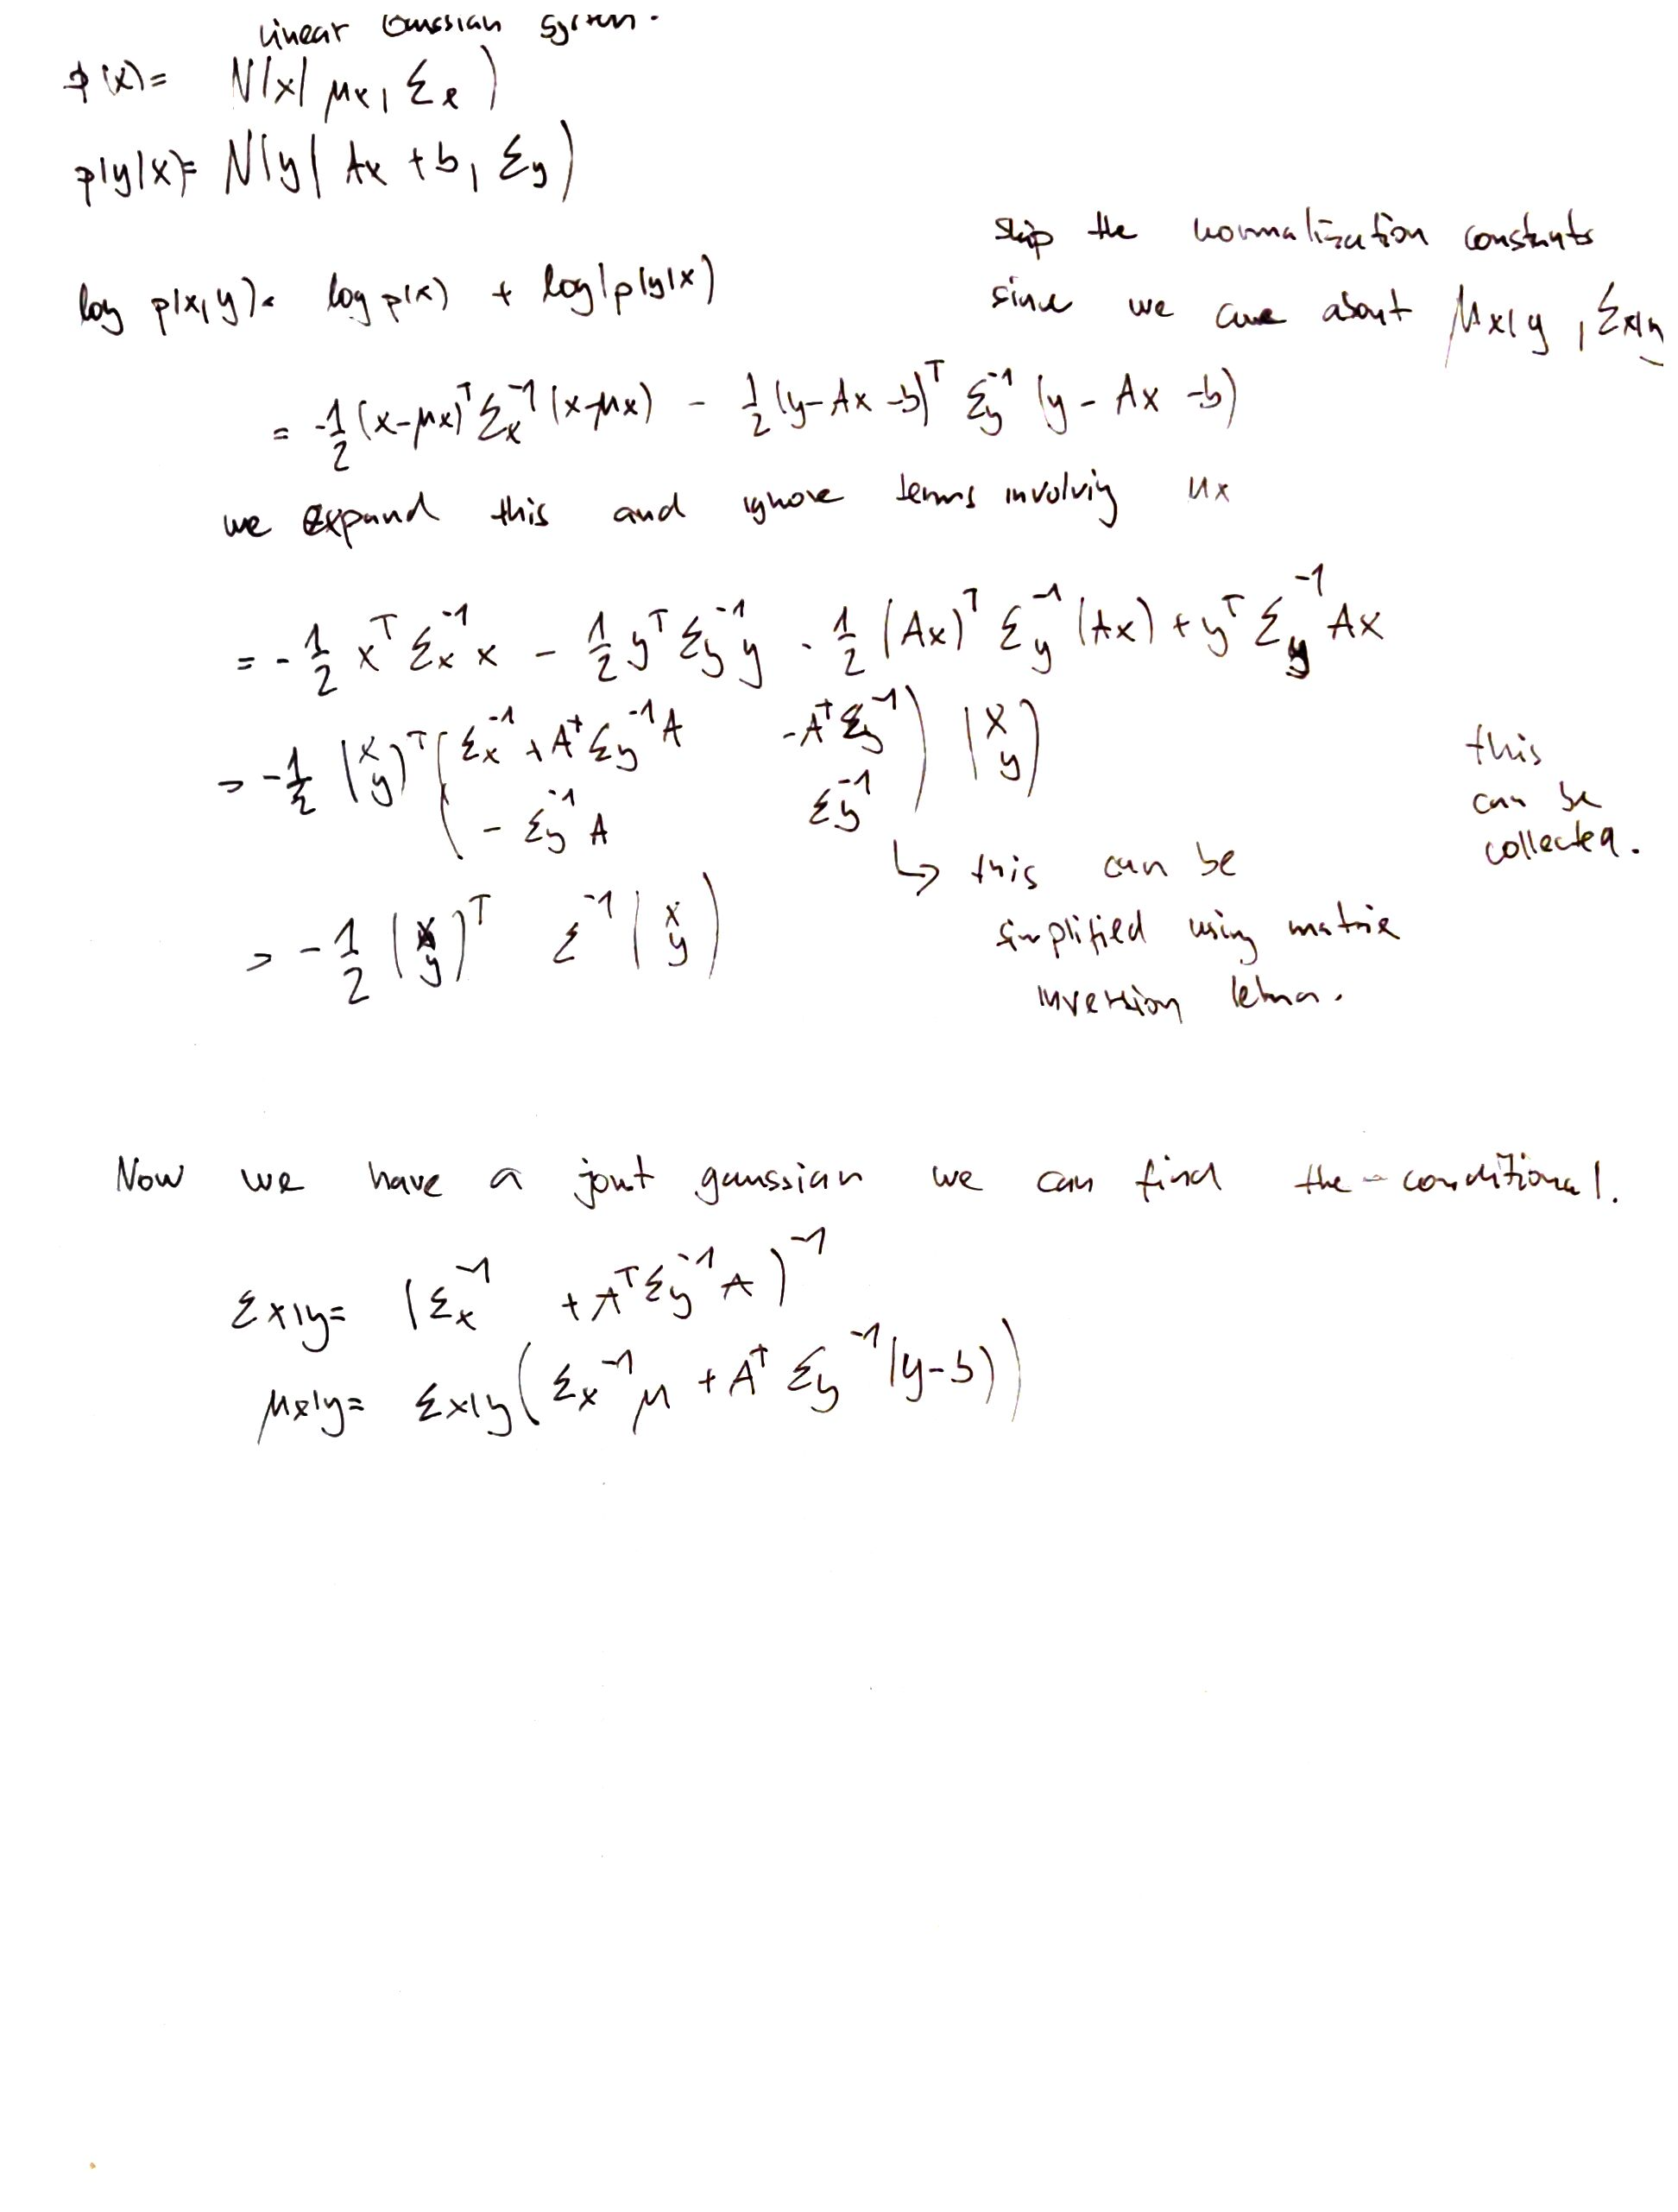 Linear Gaussian System.
p(x)= N(x| μx, Σx)
p(y|x)= N(y| Ax + b, Σy)
skip the normalization constants
log p(x,y)= log p(x) + log(p(y|x)
since we care about μx|y, Σx|y
= -1/2 (x-μx)^T Σx^-1 (x-μx) - 1/2 (y-Ax-b)^T Σy^-1 (y - Ax -b)
we expand this and ignore terms involving μx
= -1/2 x^T Σx^-1 x - 1/2 y^T Σy^-1 y - 1/2 (Ax)^T Σy^-1 (Ax) + y^T Σy^-1 Ax
= -1/2 (x y)^T ( Σx^-1 + A^T Σy^-1 A   -A^T Σy^-1 ) (x y)
( - Σy^-1 A   Σy^-1 )
this
can be
collected.
↳ this can be
simplified using matrix
inversion lemma.
= -1/2 (x y)^T Σ^-1 (x y)
Now we have a joint gaussian we can find the - conditional.
Σx|y= (Σx^-1 + A^T Σy^-1 A)^-1
μx|y= Σx|y( Σx^-1 μ + A^T Σy^-1 (y-b))